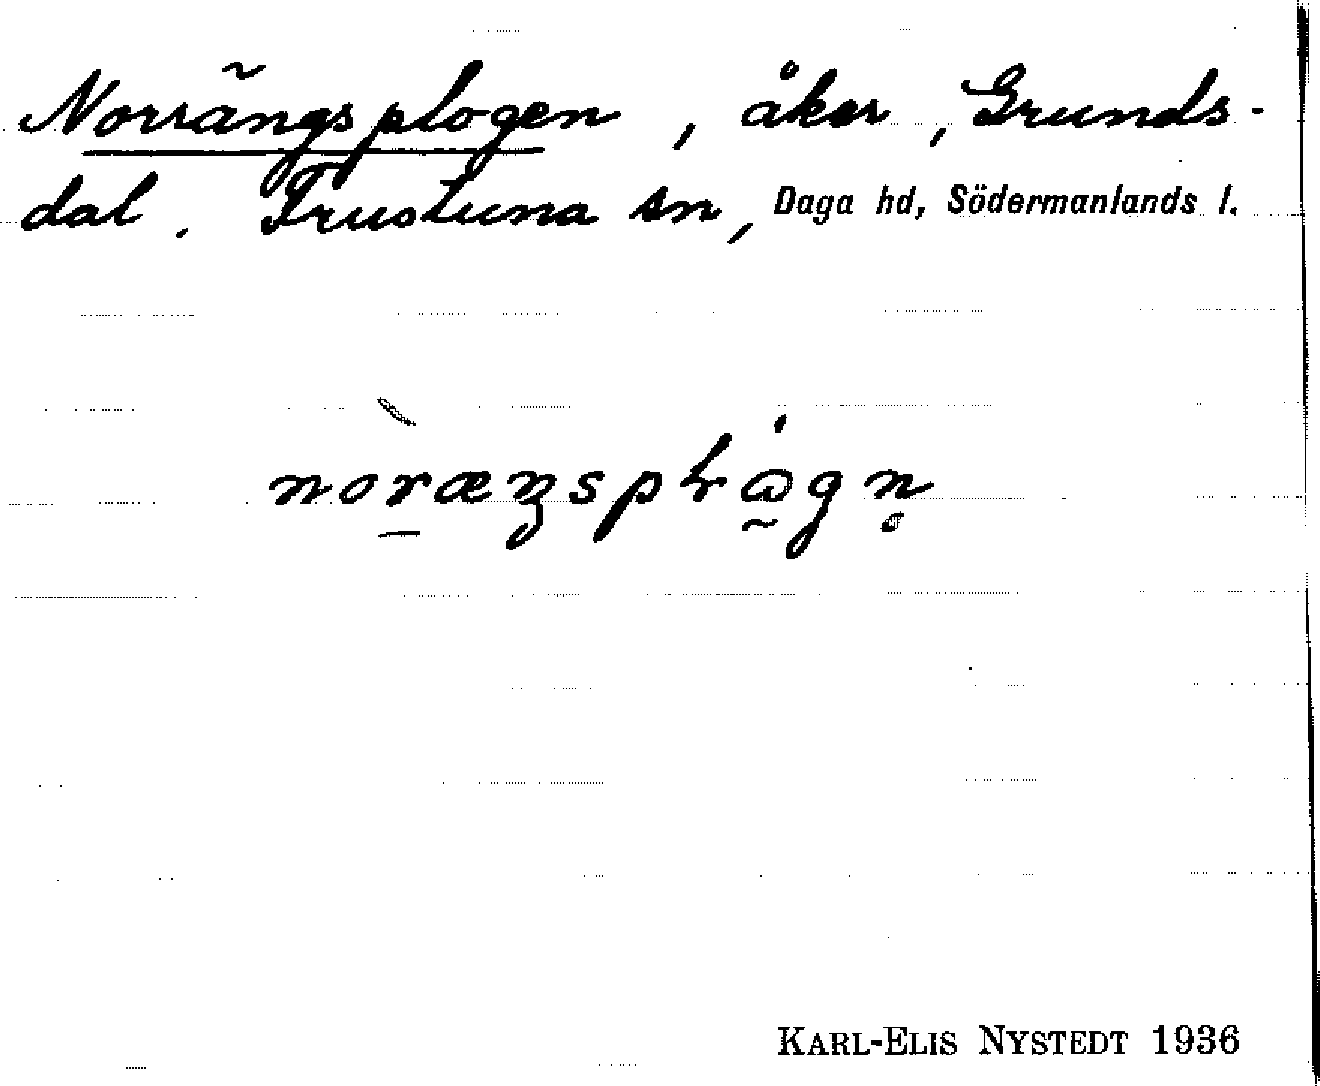 Norrängsplogen, åker, Grunds-
dal. Frustuna sn, Daga hd, Södermanlands l.
nòræŋspɬⱺgn̥
KARL-ELIS NYSTEDT 1936